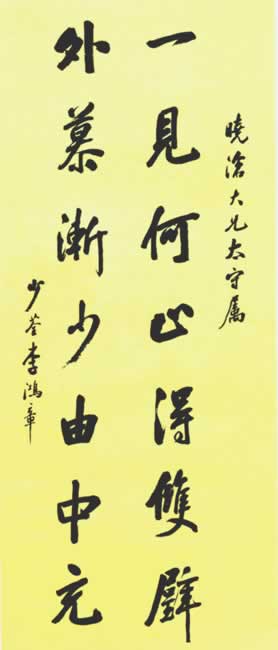 曉滄大兄太守属
一見何止得雙璧
外慕漸少由中充
少荃李鴻章